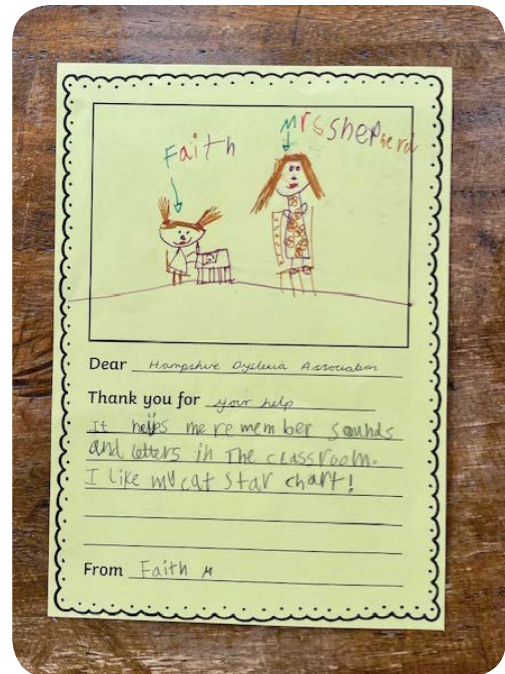 Faith
Mrs shepherd
Dear Hampshire Dyslexia Association
Thank you for your help
It helps me remember sounds
and letters in The classroom.
I like my cat star chart!
From Faith M